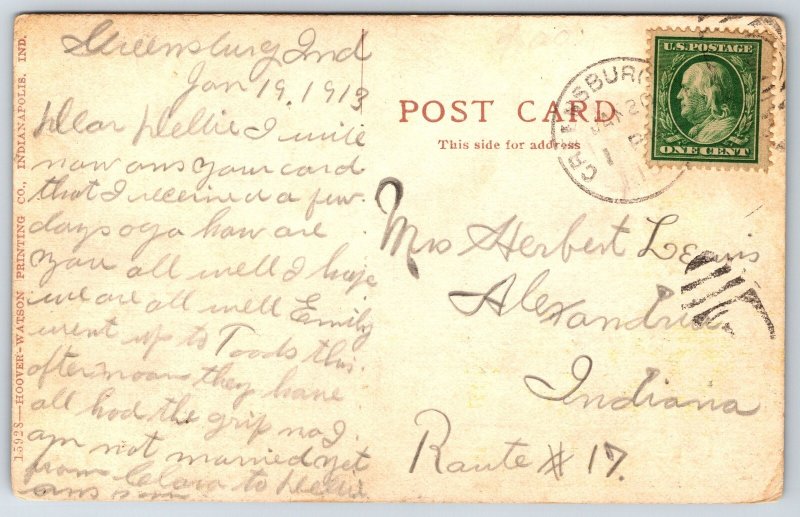 Greensburg Ind
Jan 19, 1913
Dear Nellie I write
now ans your card
that I received a few
days ago how are
you all well I hope
we are all well Emily
went up to Toods this
afternoon they have
all had the grip no I
am not married yet
from Clara to Nellie
ans soon
15928—HOOVER-WATSON PRINTING CO., INDIANAPOLIS. IND.
POST CARD
This side for address
U.S. POSTAGE
ONE CENT
Mrs Herbert Lewis
Alexandria
Indiana
Route # 17.